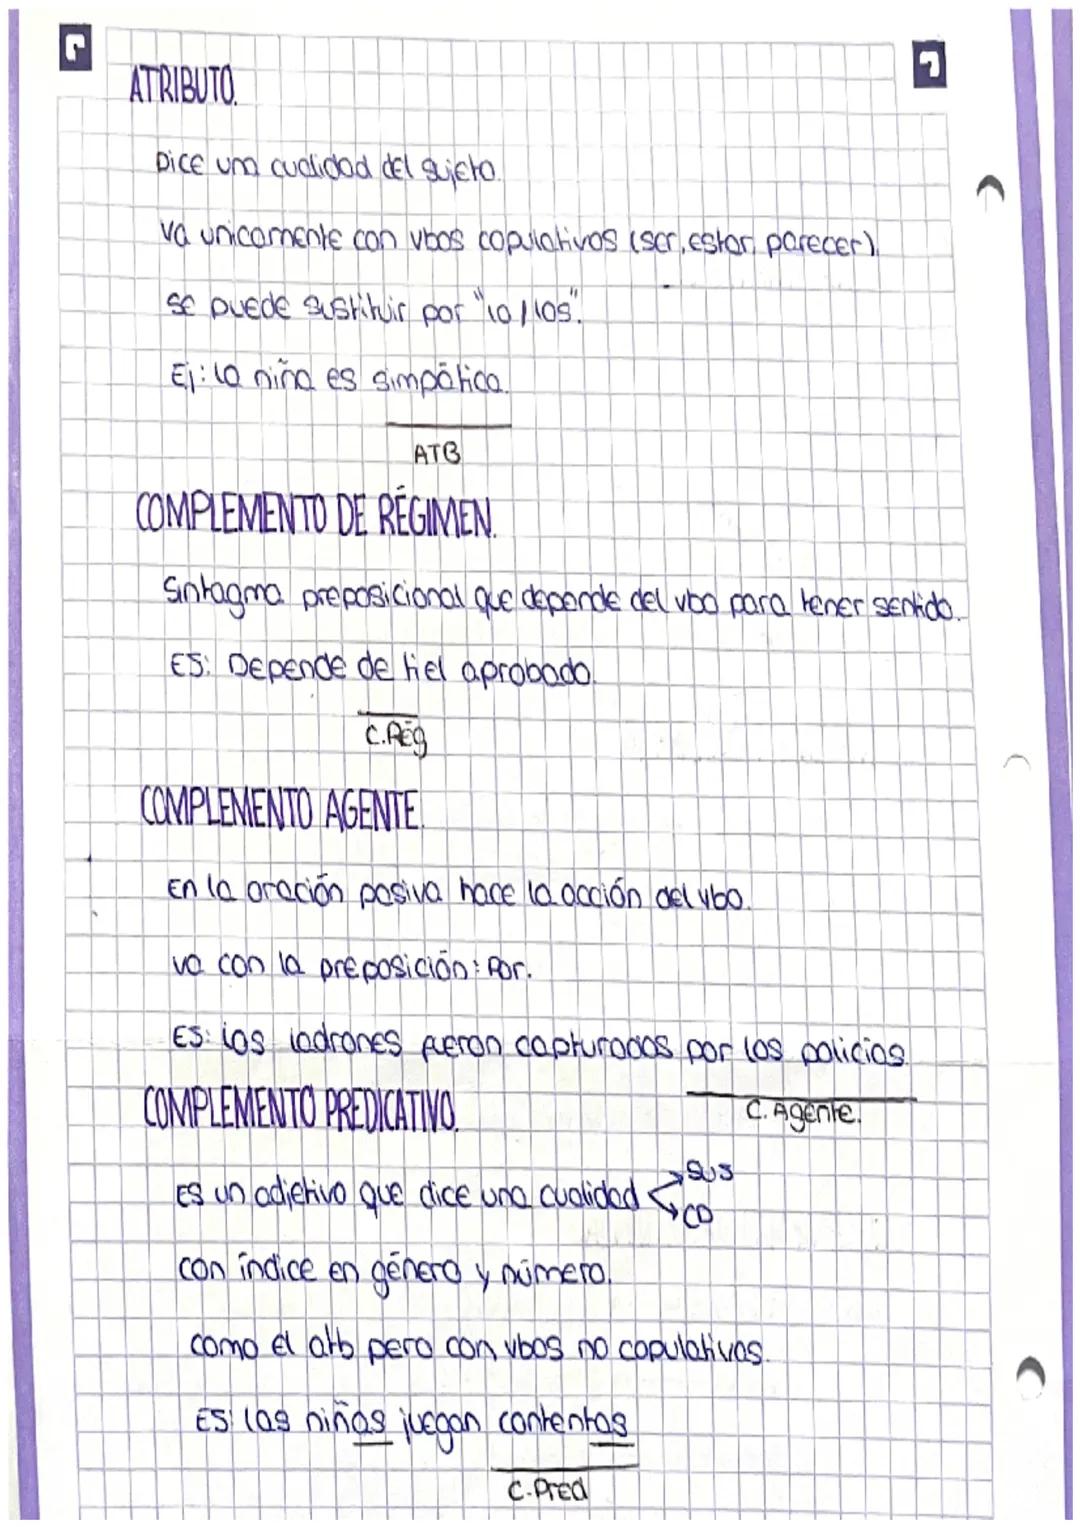 ATRIBUTO.
Dice una cualidad del sujeto.
Va unicamente con vbos copulativos (ser, estar, parecer).
Se puede sustituir por "lo / los".
Ej: La niña es simpática.
ATB
COMPLEMENTO DE RÉGIMEN.
Sintagma preposicional que depende del vbo para tener sentido.
ES: Depende de ti el aprobado.
C.Rég
COMPLEMENTO AGENTE.
En la oración pasiva hace la acción del vbo.
va con la preposición: Por.
ES: los ladrones fueron capturados por los policías.
C. Agente.
COMPLEMENTO PREDICATIVO.
Es un adjetivo que dice una cualidad
SUJ
CD
con índice en género y número.
como el atb pero con vbos no copulativos.
ES: las niñas juegan contentas
C.Pred